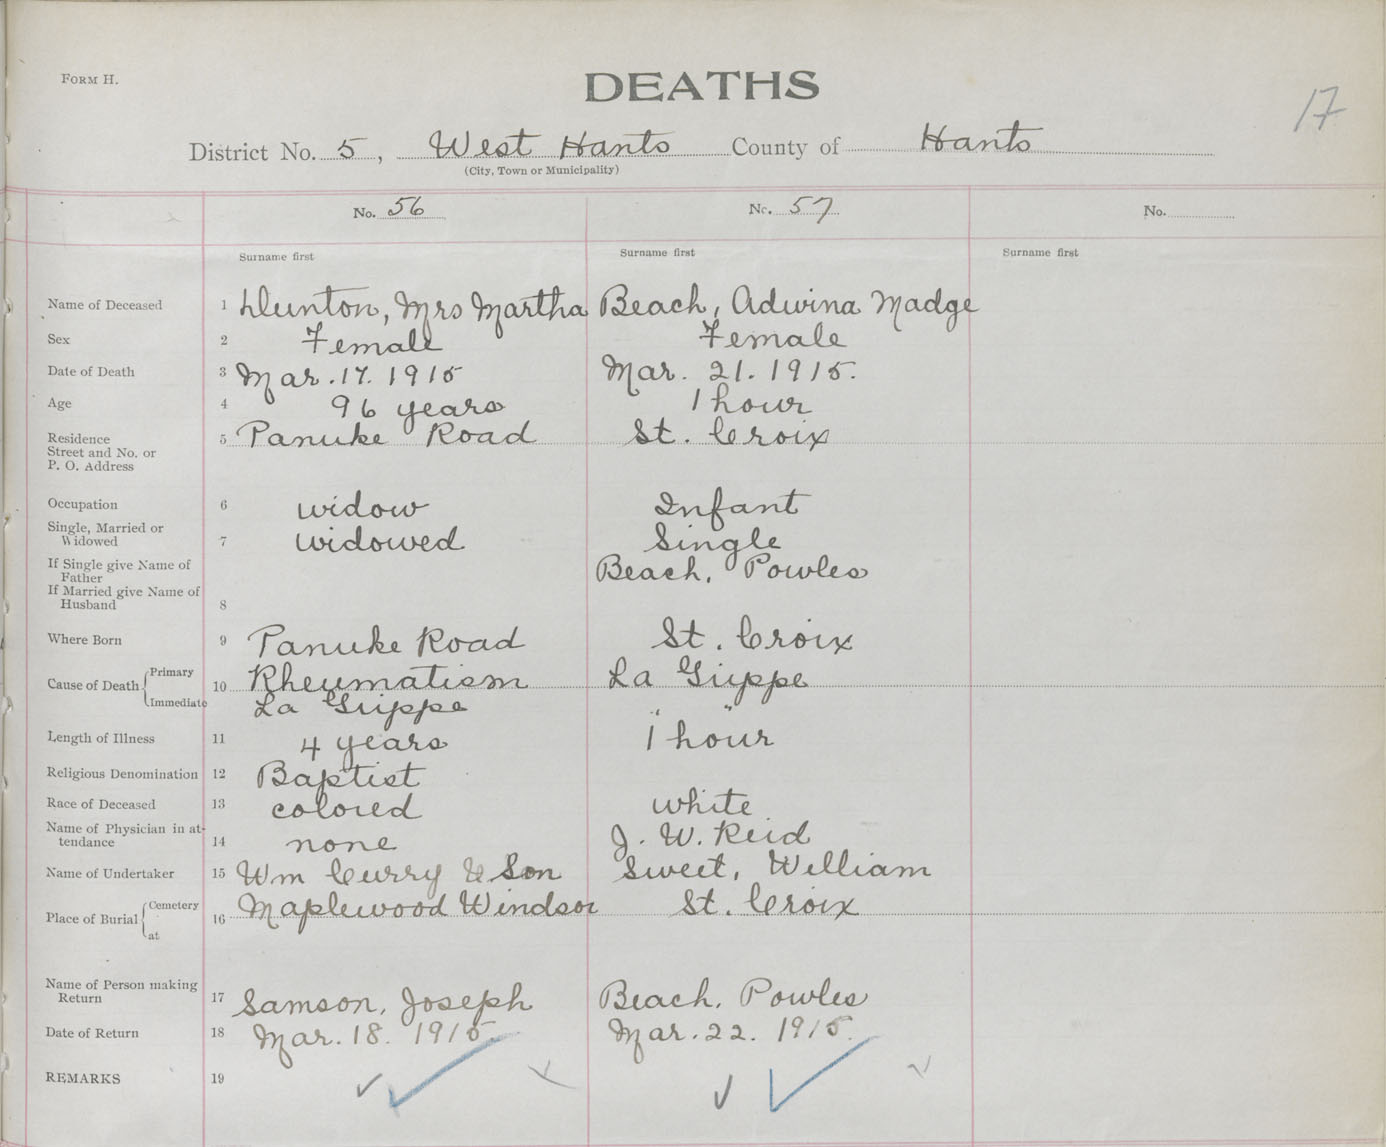 FORM H.
DEATHS
17
District No. 5, West Hants County of Hants
(City, Town or Municipality)
No. 56 No. 57 No.
Surname first Surname first Surname first
Name of Deceased 1 Dunton, Mrs Martha Beach, Adwina Madge
Sex 2 Female Female
Date of Death 3 Mar. 17. 1915 Mar. 21. 1915.
Age 4 96 years 1 hour
Residence 5 Panuke Road St. Croix
Street and No. or
P. O. Address
Occupation 6 widow Infant
Single, Married or
Widowed 7 widowed Single
If Single give Name of
Father Beach, Powles
If Married give Name of
Husband 8
Where Born 9 Panuke Road St. Croix
Cause of Death Primary 10 Rheumatism La Grippe
Immediate La Grippe " "
Length of Illness 11 4 years 1 hour
Religious Denomination 12 Baptist
Race of Deceased 13 colored white
Name of Physician in at-
tendance 14 none J. W. Reid
Name of Undertaker 15 Wm Curry & Son Sweet, William
Place of Burial Cemetery 16 Maplewood Windsor St. Croix
at
Name of Person making
Return 17 Samson, Joseph Beach, Powles
Date of Return 18 Mar. 18. 1915. Mar. 22. 1915.
REMARKS 19